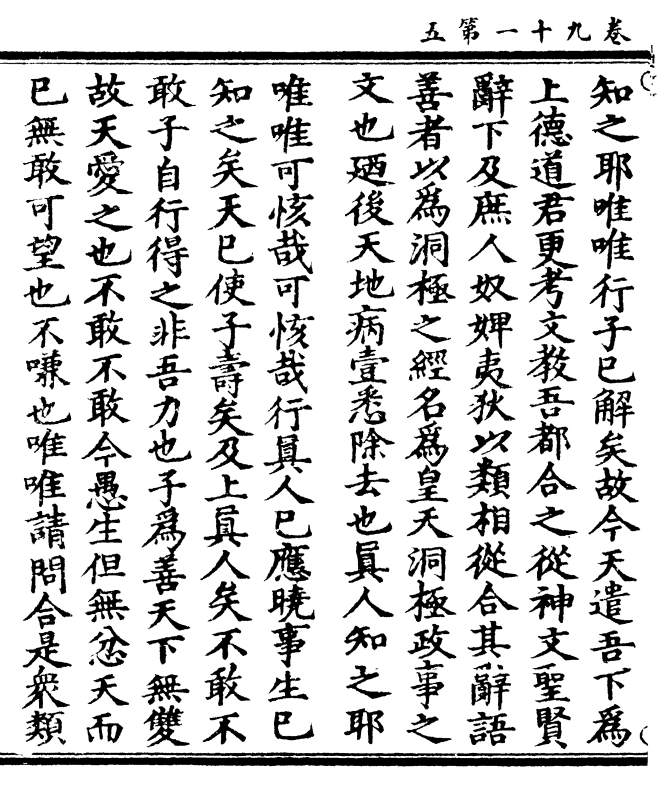 五第一十九卷
知之耶唯唯行子已解矣故今天遣吾下為
上德道君更考文教吾都合之從神文聖賢
辭下及庶人奴婢夷狄以類相從合其辭語
善者以為洞極之經名為皇天洞極政事之
文也廼後天地病壹悉除去也真人知之耶
唯唯可㤥哉可㤥哉行真人已應曉事生已
知之矣天已使子壽矣及上真人矣不敢不
敢子自行得之非吾力也子為善天下無雙
故天愛之也不敢不敢今愚生但無忿天而
已無敢可望也不嗛也唯唯請問合是衆類